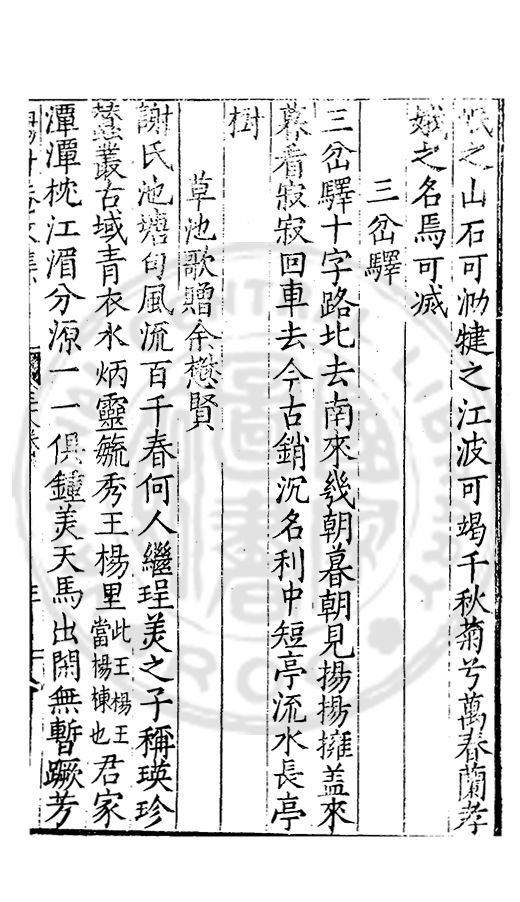 岷之山石可泐犍之江波可竭千秋菊兮萬春蘭孝
娥之名焉可滅
三岔驛
三岔驛十字路北去南來幾朝暮朝見揚揚擁盖來
暮看寂寂回車去今古銷沉名利中短亭流水長亭
樹
草池歌贈余懋賢
謝氏池塘句風流百千春何人繼珵美之子稱瑛珍
蠶叢古域青衣水炳靈毓秀王楊里此王楊王當楊棟也君家
潭潭枕江湄分源一一俱鍾美天馬出閑無暫蹶芳